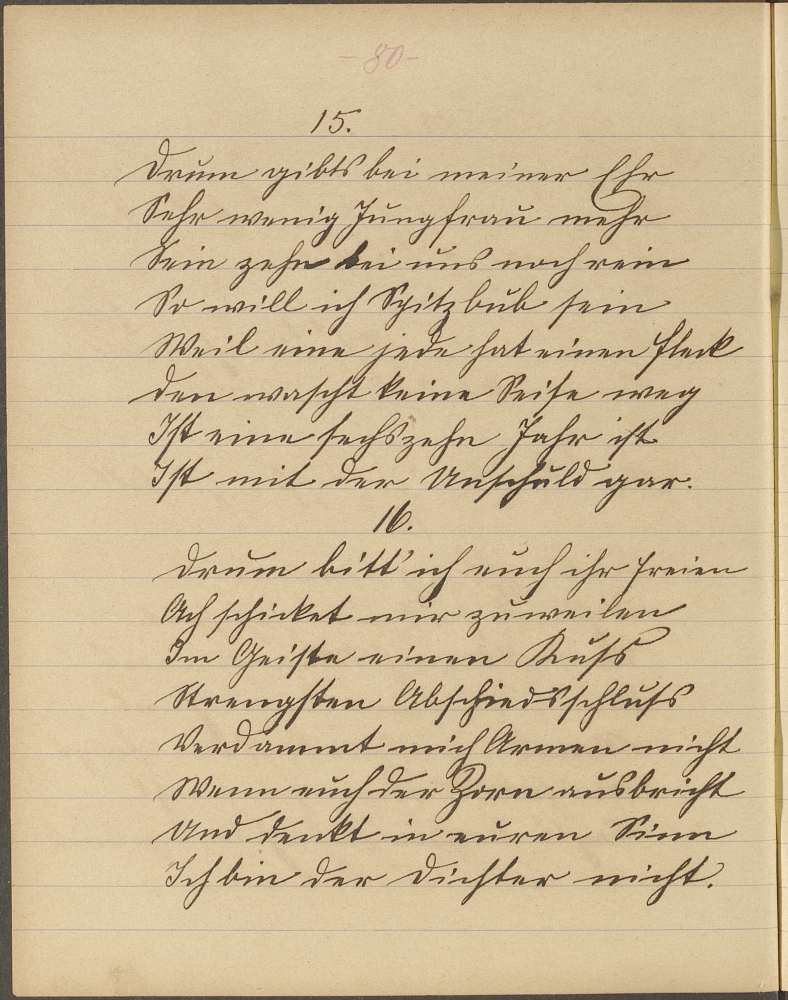 - 80 -
15.
Drum gibts bei meiner Ehr
Sehr wenig Jungfrau mehr
Sein zehn bei uns noch rein
So will ich Spitzbub sein
Weil eine jede hat einen Fleck
Den wascht keine Seife weg
Ist eine sechszehn Jahr ist
Ist mit der Unschuld gar.
16.
Drum bitt' ich euch ihr Freien
Ach schicket mir zuweilen
Im Geiste einen Kuss
Strengsten Abschiedsschluss
Verdammt mich Armen nicht
Wenn euch der Zorn ausbricht
Und denkt in euren Sinn
Ich bin der Dichter nicht.